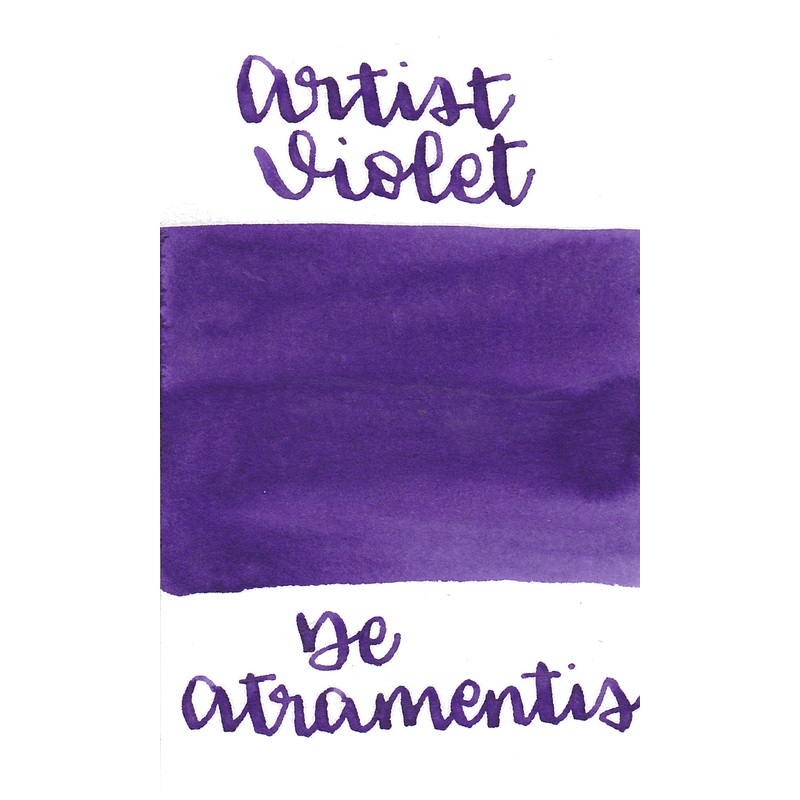 Artist
Violet
De
Atramentis